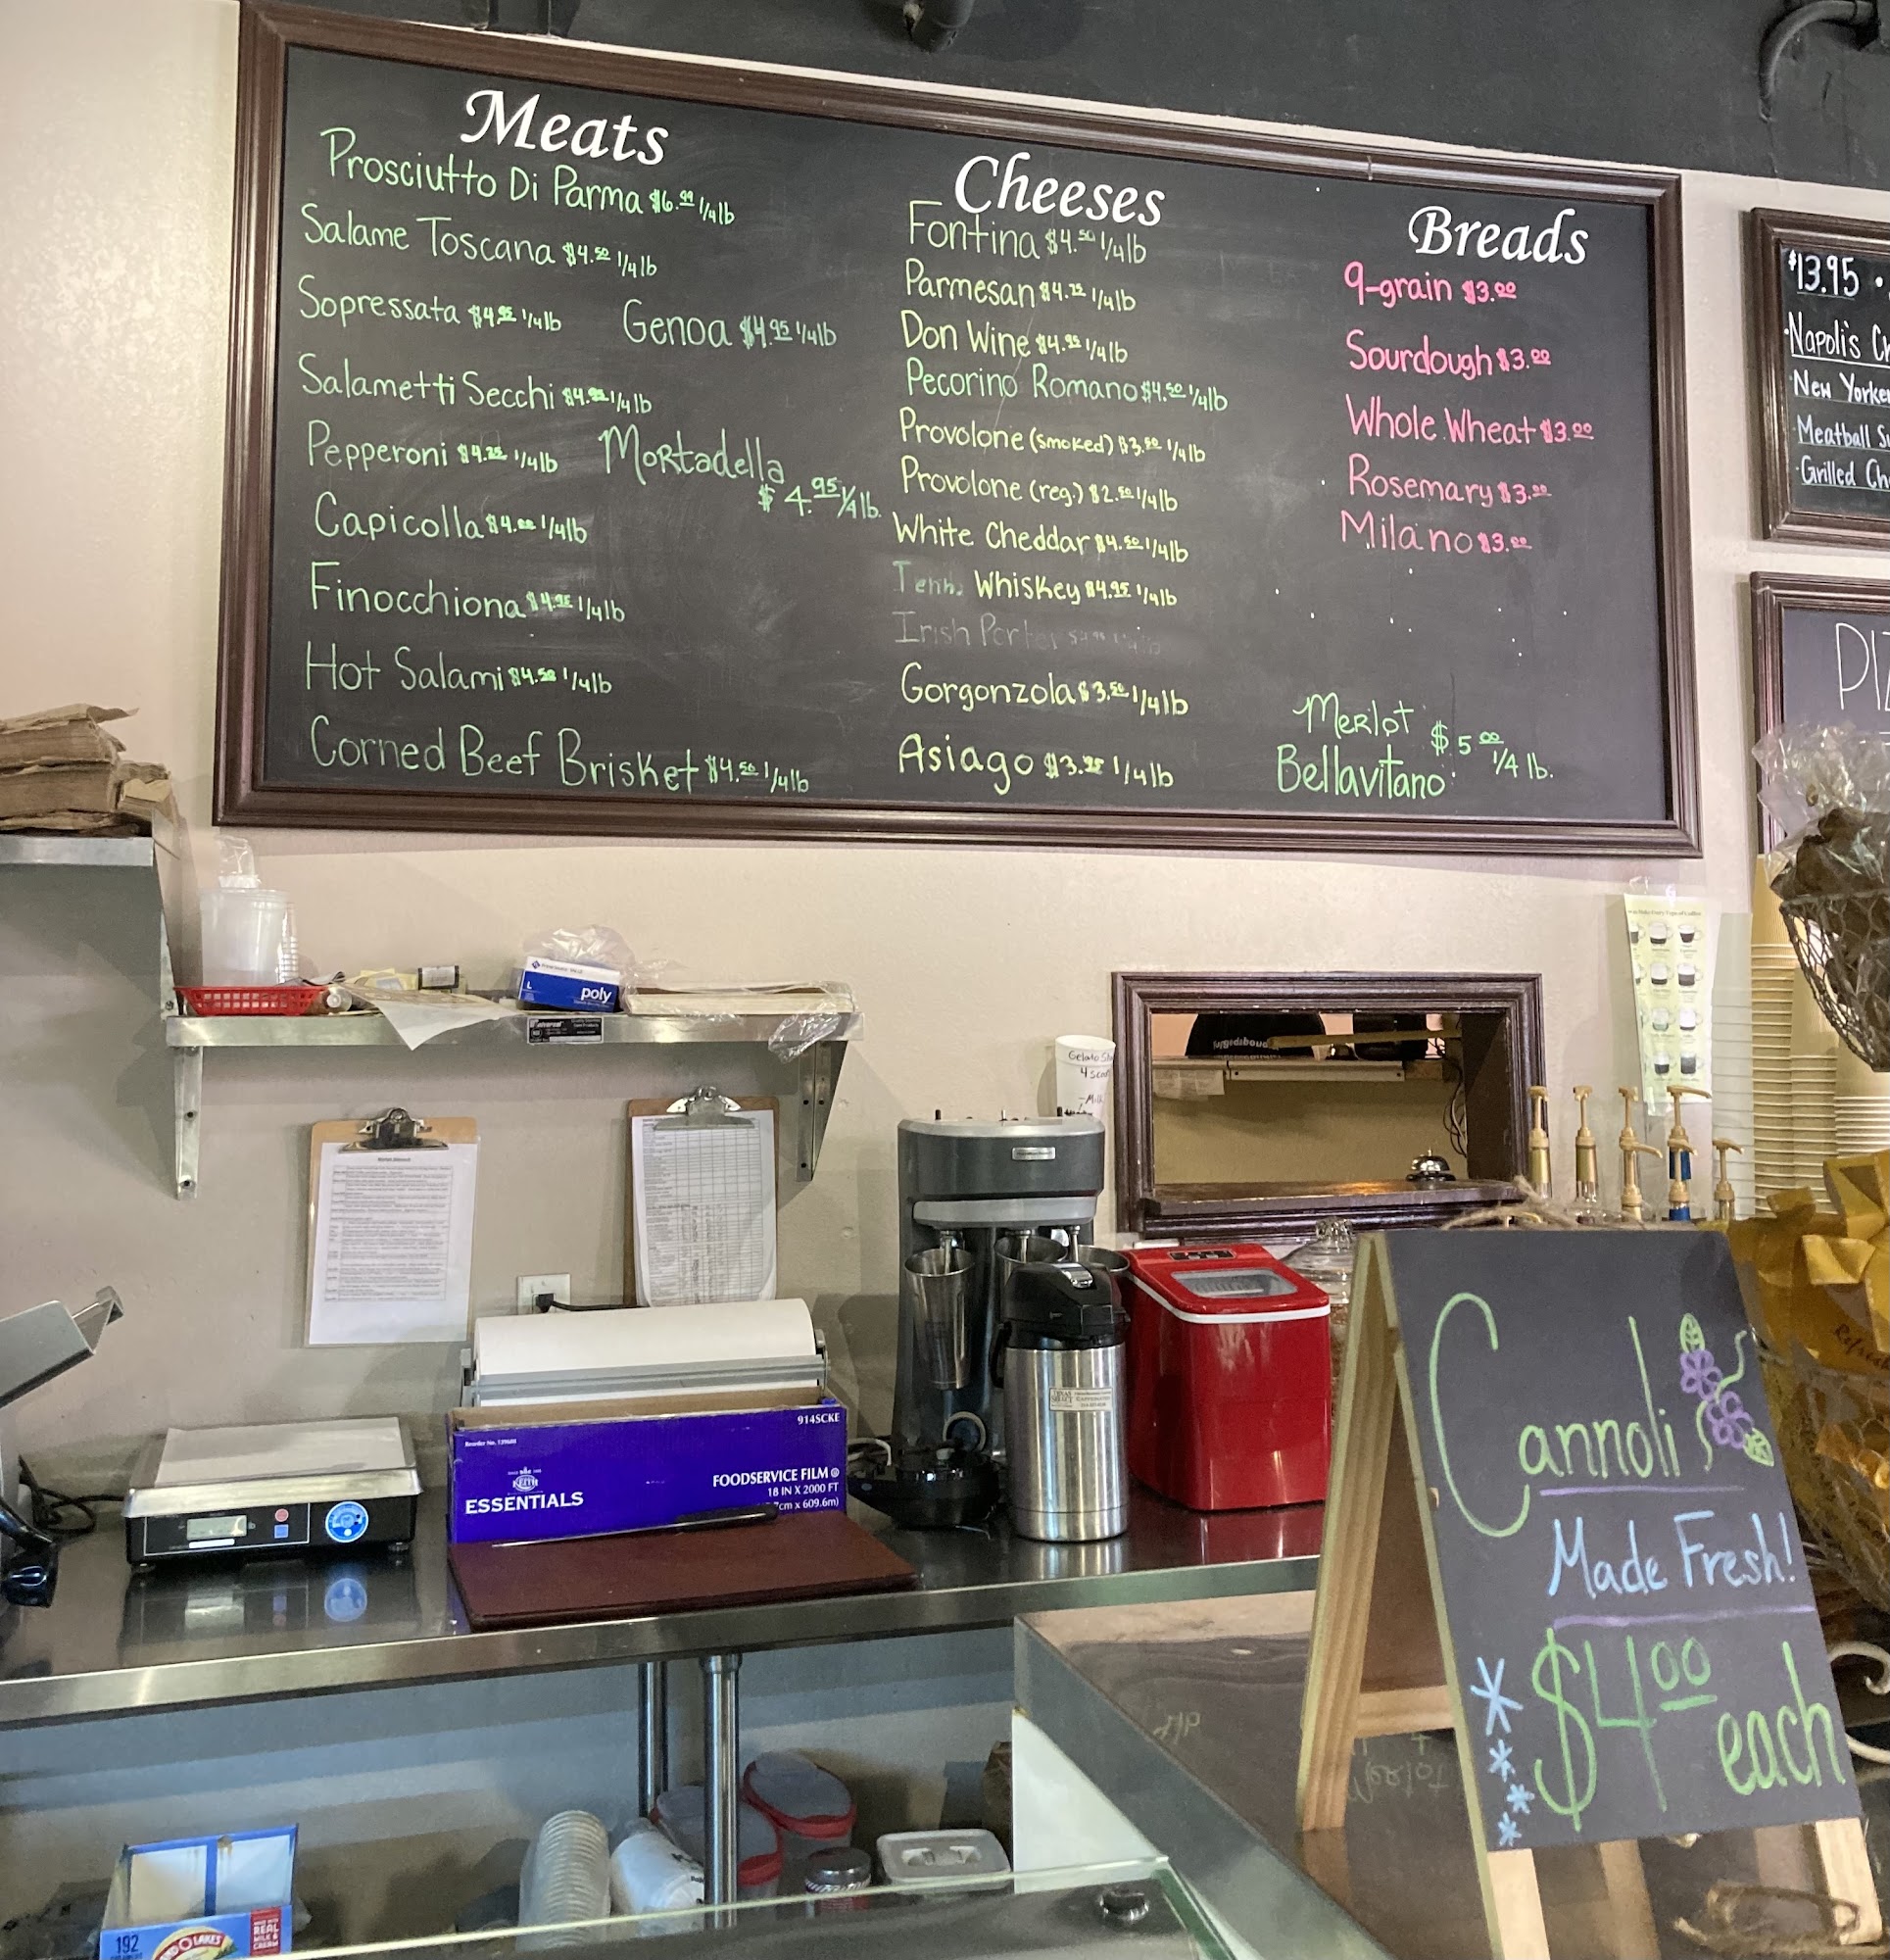 Meats
Prosciutto Di Parma $6.99 1/4lb
Salame Toscana $4.50 1/4lb
Sopressata $4.95 1/4lb
Genoa $4.95 1/4lb
Salametti Secchi 1/4lb
Pepperoni $4.25 1/4lb
Mortadella
$4.95 1/4 lb.
Capicolla $4.00 1/4lb
Finocchiona $4.95 1/4lb
Hot Salami $4.50 1/4lb
Corned Beef Brisket $4.50 1/4lb
Cheeses
Fontina $4.50 1/4lb
Parmesan 1/4lb
Don Wine $4.95 1/4lb
Pecorino Romano $4.50 1/4lb
Provolone (smoked) $3.50 1/4lb
Provolone (reg.) $2.50 1/4lb
White Cheddar $4.50 1/4lb
Tenn. Whiskey $4.95 1/4lb
Irish Porter
Gorgonzola $3.50 1/4lb
Asiago 1/4lb
Breads
9-grain $3.00
Sourdough $3.00
Whole Wheat $3.00
Rosemary $3.00
Milano $3.00
Merlot
Bellavitano
$5.00 1/4 lb.
$13.95 •
Napoli's
New Yorker
Meatball
Grilled
L
poly
Gelato
4
914SCKE
KEITH
ESSENTIALS
FOODSERVICE FILM
18 IN X 2000 FT
x 609.6m)
Cannoli
Made Fresh!
$4.00
each
192
REAL
MILK &
CREAM
O LAKES